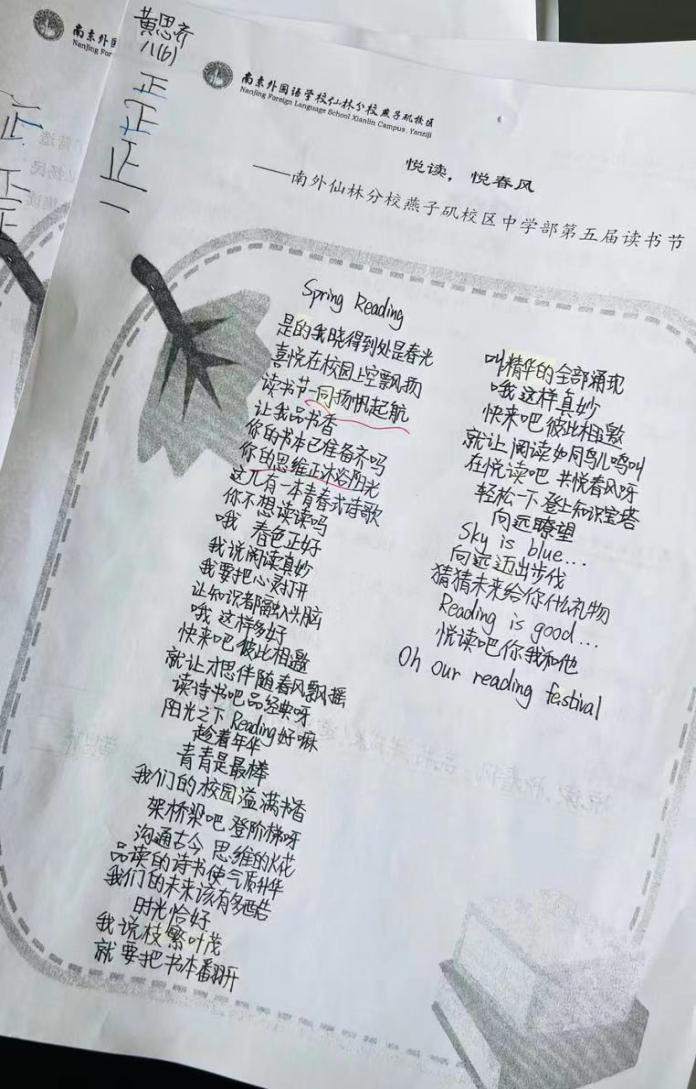 黄思齐
八(6)
正
正
正
一
南京外国语学校仙林分校燕子矶校区
Nanjing Foreign Language School Xianlin Campus, Yanziji
悦读，悦春风
——南外仙林分校燕子矶校区中学部第五届读书节
Spring Reading
是的我晓得到处是春光
喜悦在校园上空飘扬
读书节一同扬帆起航
让我品书香
你的书本已准备齐吗
你的思维正沐浴阳光
这儿有一本青春式诗歌
你不想读读吗
哦 春色正好
我说阅读真妙
我要把心灵打开
让知识都融入头脑
哦 这样多好
快来吧 彼此相邀
就让才思伴随春风飘摇
读诗书吧 品经典呀
阳光之下 Reading好嘛
趁着年华
青青是最棒
我们的校园溢满书香
架桥梁吧 登阶梯呀
沟通古今 思维的火花
品读的诗书使气质升华
我们的未来该有多酷
时光恰好
我说枝繁叶茂
就要把书本翻开
叫精华的全部涌现
哦 这样真妙
快来吧 彼此相邀
就让阅读如同鸟儿鸣叫
在悦读吧 共悦春风呀
轻松一下 登上知识宝塔
向远瞭望
Sky is blue...
向远迈出步伐
猜猜未来给你什么礼物
Reading is good...
悦读吧 你我和他
Oh our reading festival